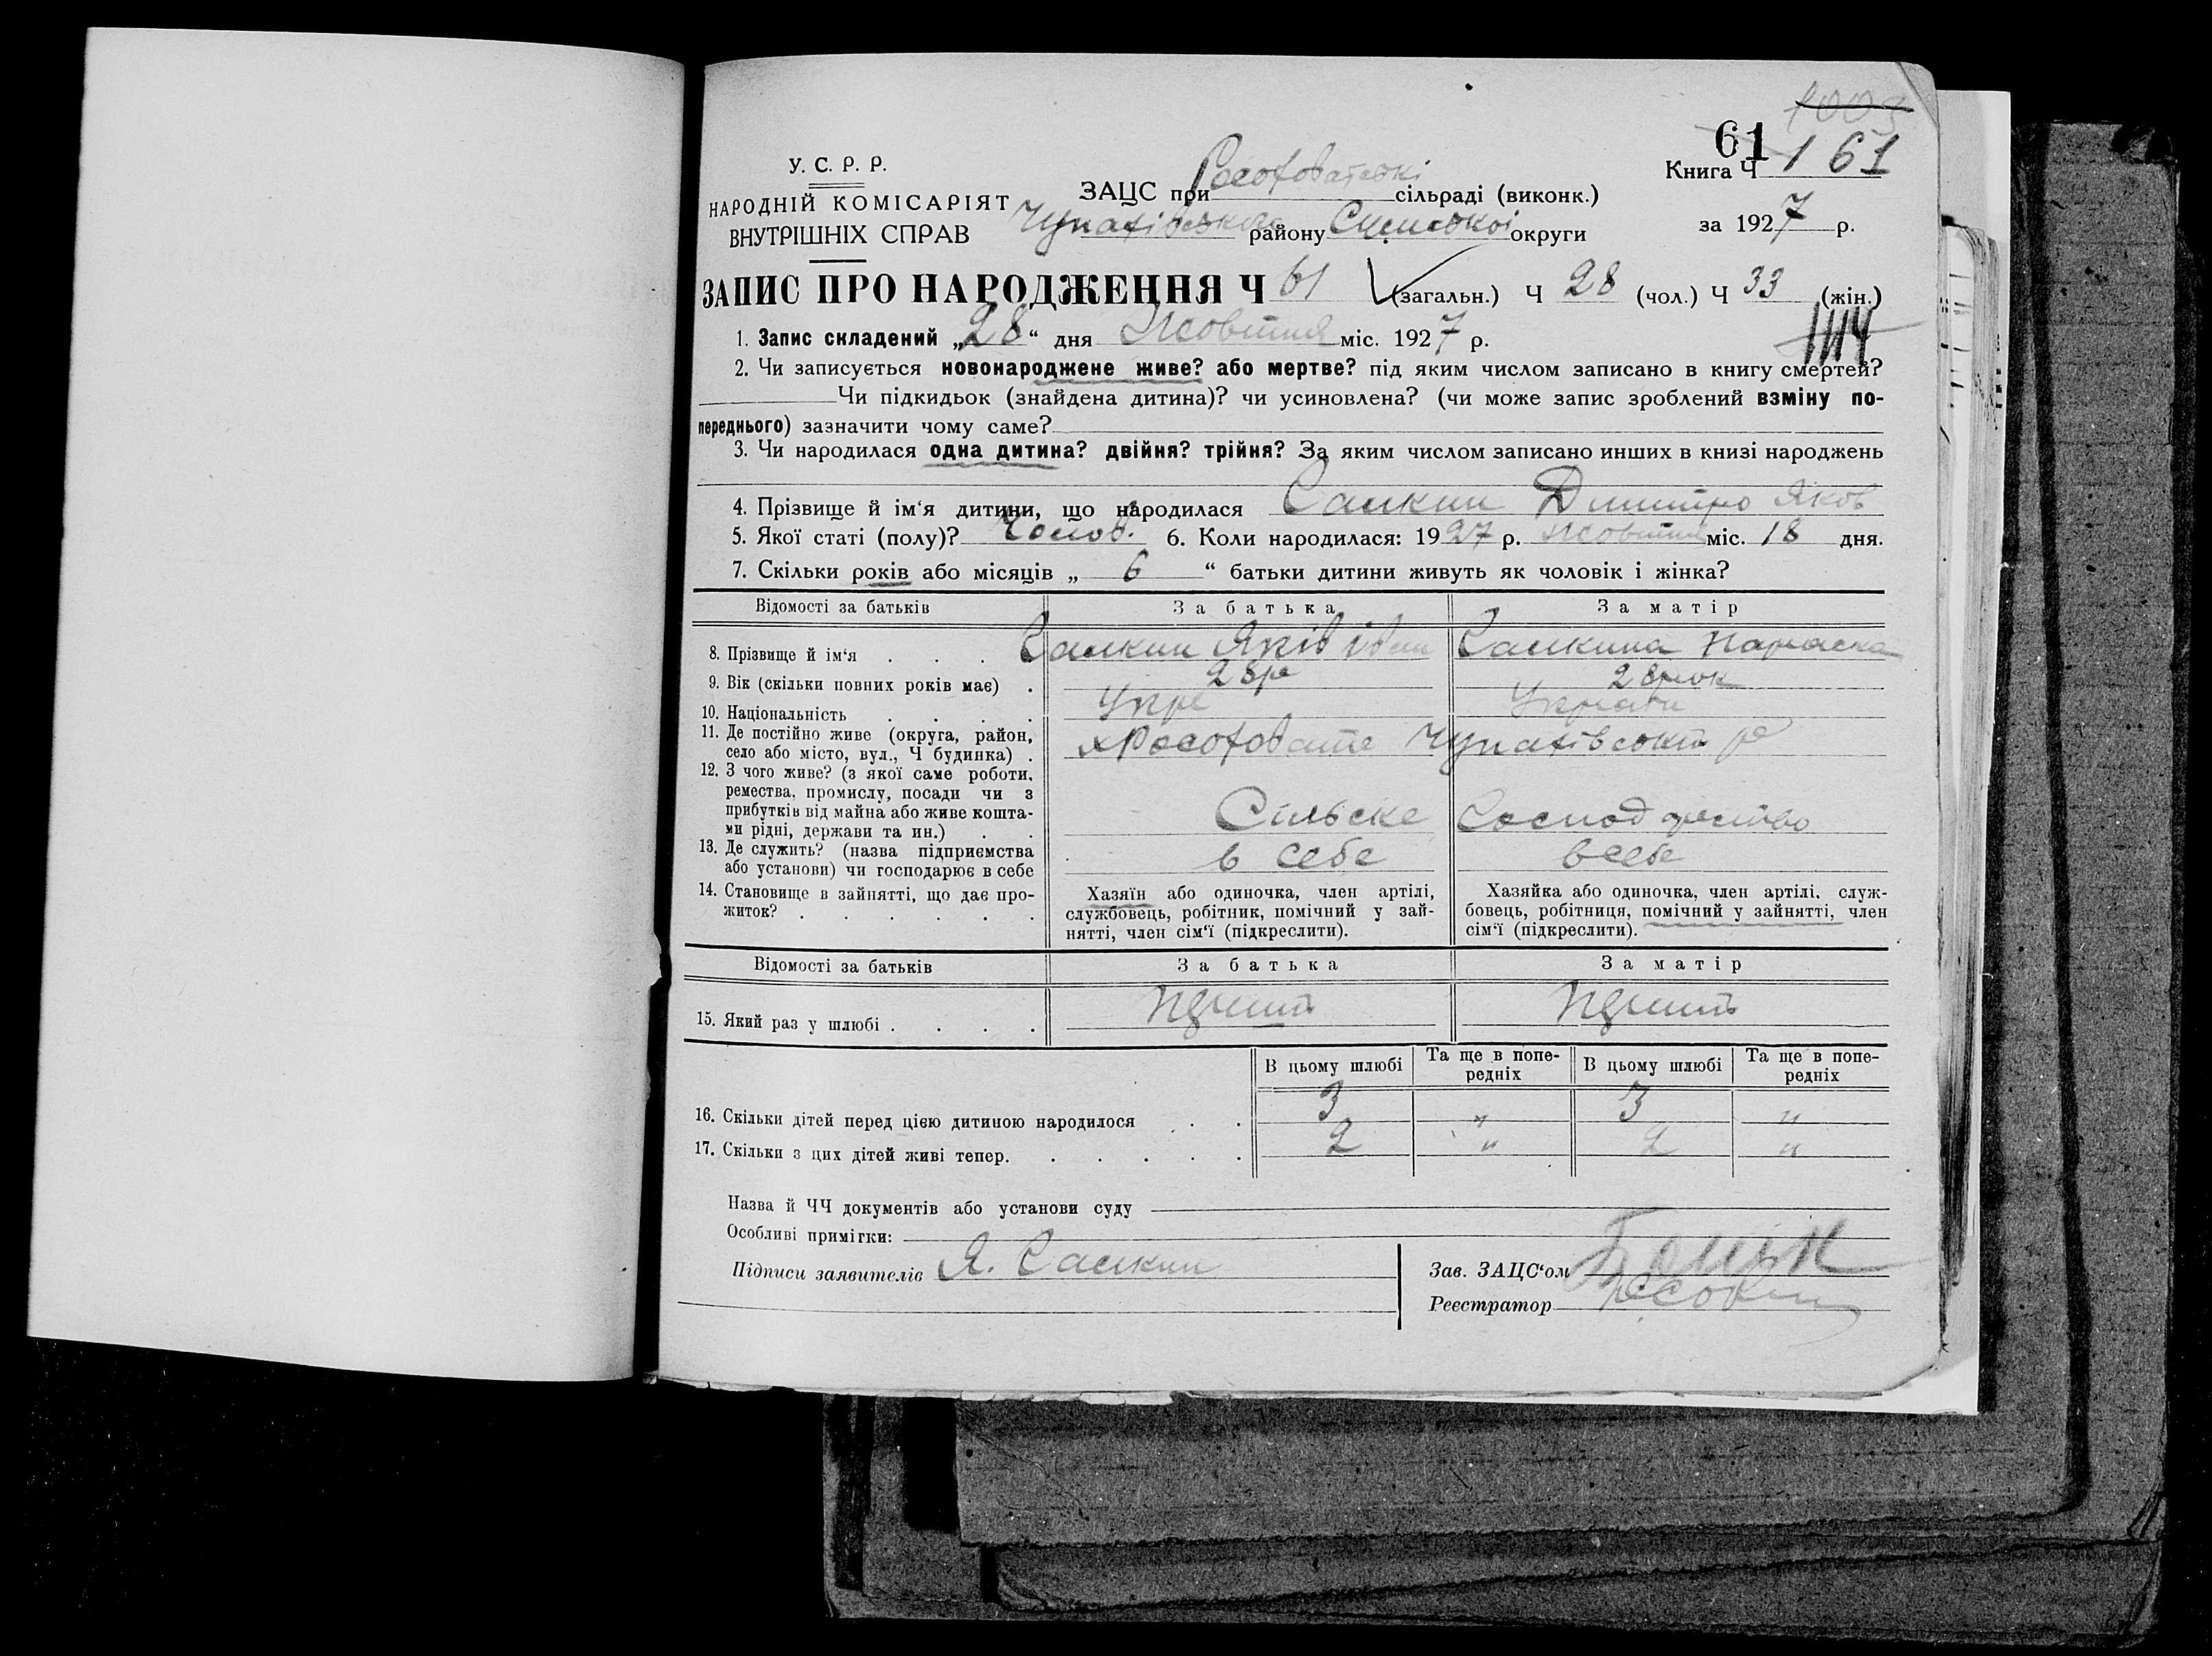 1003
61
Книга Ч 1 61
У. С. Р. Р.
НАРОДНІЙ КОМІСАРІЯТ
ВНУТРІШНІХ СПРАВ
ЗАЦС при Росоховатські сільраді (виконк.)
Чупахівського району Сумської округи
за 1927 р.
ЗАПИС ПРО НАРОДЖЕННЯ Ч 61 (загальн.) Ч 28 (чол.) Ч 33 (жін.)
1. Запис складений „28“ дня Жовтня міс. 1927 р.
1114
2. Чи записується новонароджене живе? або мертве? під яким числом записано в книгу смертей?
Чи підкидьок (знайдена дитина)? чи усиновлена? (чи може запис зроблений взміну по-
переднього) зазначити чому саме?
3. Чи народилася одна дитина? двійня? трійня? За яким числом записано инших в книзі народжень
4. Прізвище й ім‘я дитини, що народилася Самкин Дмитро Яков
5. Якої статі (полу)? Чолов. 6. Коли народилася: 1927 р. Жовтня міс. 18 дня.
7. Скільки років або місяців „ 6 “ батьки дитини живуть як чоловік і жінка?
Відомості за батьків За батька За матір
8. Прізвище й ім‘я . . . Самкин Яків Іван Самкина Параска
9. Вік (скільки повних років має) . 28 ро 28 рок
10. Національність . . . . Укра Украін
11. Де постійно живе (округа, район,
село або місто, вул., Ч будинка) . х Росоховате Чупахівськ ра
12. З чого живе? (з якої саме роботи,
ремества, промислу, посади чи з
прибутків від майна або живе кошта-
ми рідні, держави та ин.) . . Сільске Господарство
13. Де служить? (назва підприємства
або установи) чи господарює в себе в себе в себе
14. Становище в зайнятті, що дає про-
житок? . . . . . .
Хазяїн або одиночка, член артілі,
службовець, робітник, помічний у зай-
нятті, член сім‘ї (підкреслити).
Хазяйка або одиночка, член артілі, служ-
бовець, робітниця, помічний у зайнятті, член
сім‘ї (підкреслити).
Відомості за батьків За батька За матір
15. Який раз у шлюбі . . . .
В цьому шлюбі Та ще в попе-
редніх В цьому шлюбі Та ще в попе-
редніх
16. Скільки дітей перед цією дитиною народилося . . 3 „ 3 „
17. Скільки з цих дітей живі тепер. . . . . . 2 „ 2 „
Назва й ЧЧ документів або установи суду
Особливі примітки:
Підписи заявителів Я. Самкин
Зав. ЗАЦС‘ом
Реєстратор